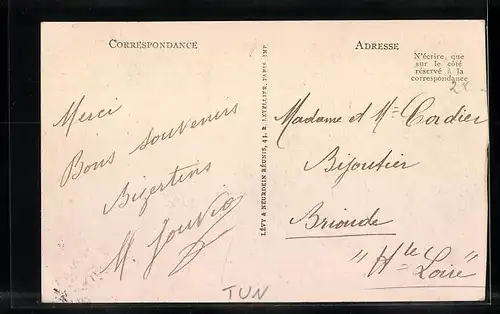 CORRESPONDANCE
ADRESSE
N'écrire que
sur le côté
réservé à la
correspondance
Merci
Bons souvenirs
Bizertins
M. Jouvia
LÉVY & NEURDEIN RÉUNIS, 44, R. LETELLIER, PARIS IMP.
Madame et Mr Cordier
Bijoutier
Brioude
"Hte Loire"
TUN